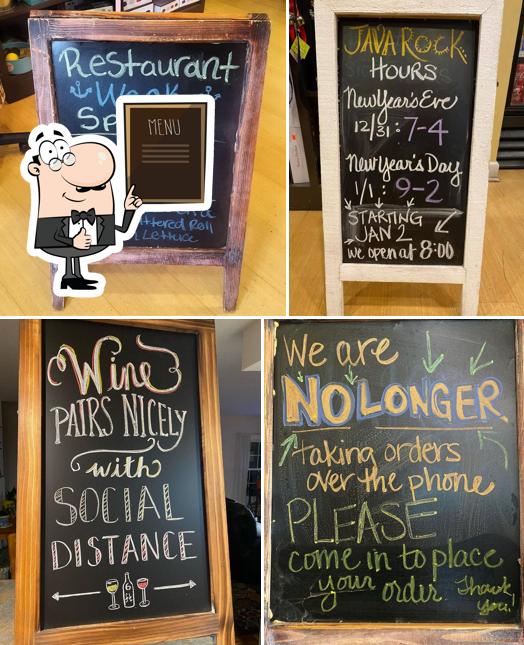 Restaurant
Week
MENU
Lettuce
JAVA ROCK
HOURS
New Year's Eve
12/31: 7-4
New Year's Day
1/1: 9-2
STARTING
JAN 2
we open at 8:00
Wine
PAIRS NICELY
with
SOCIAL
DISTANCE
We are
NO LONGER
taking orders
over the phone
PLEASE
come in to place
your order
Thank
you!